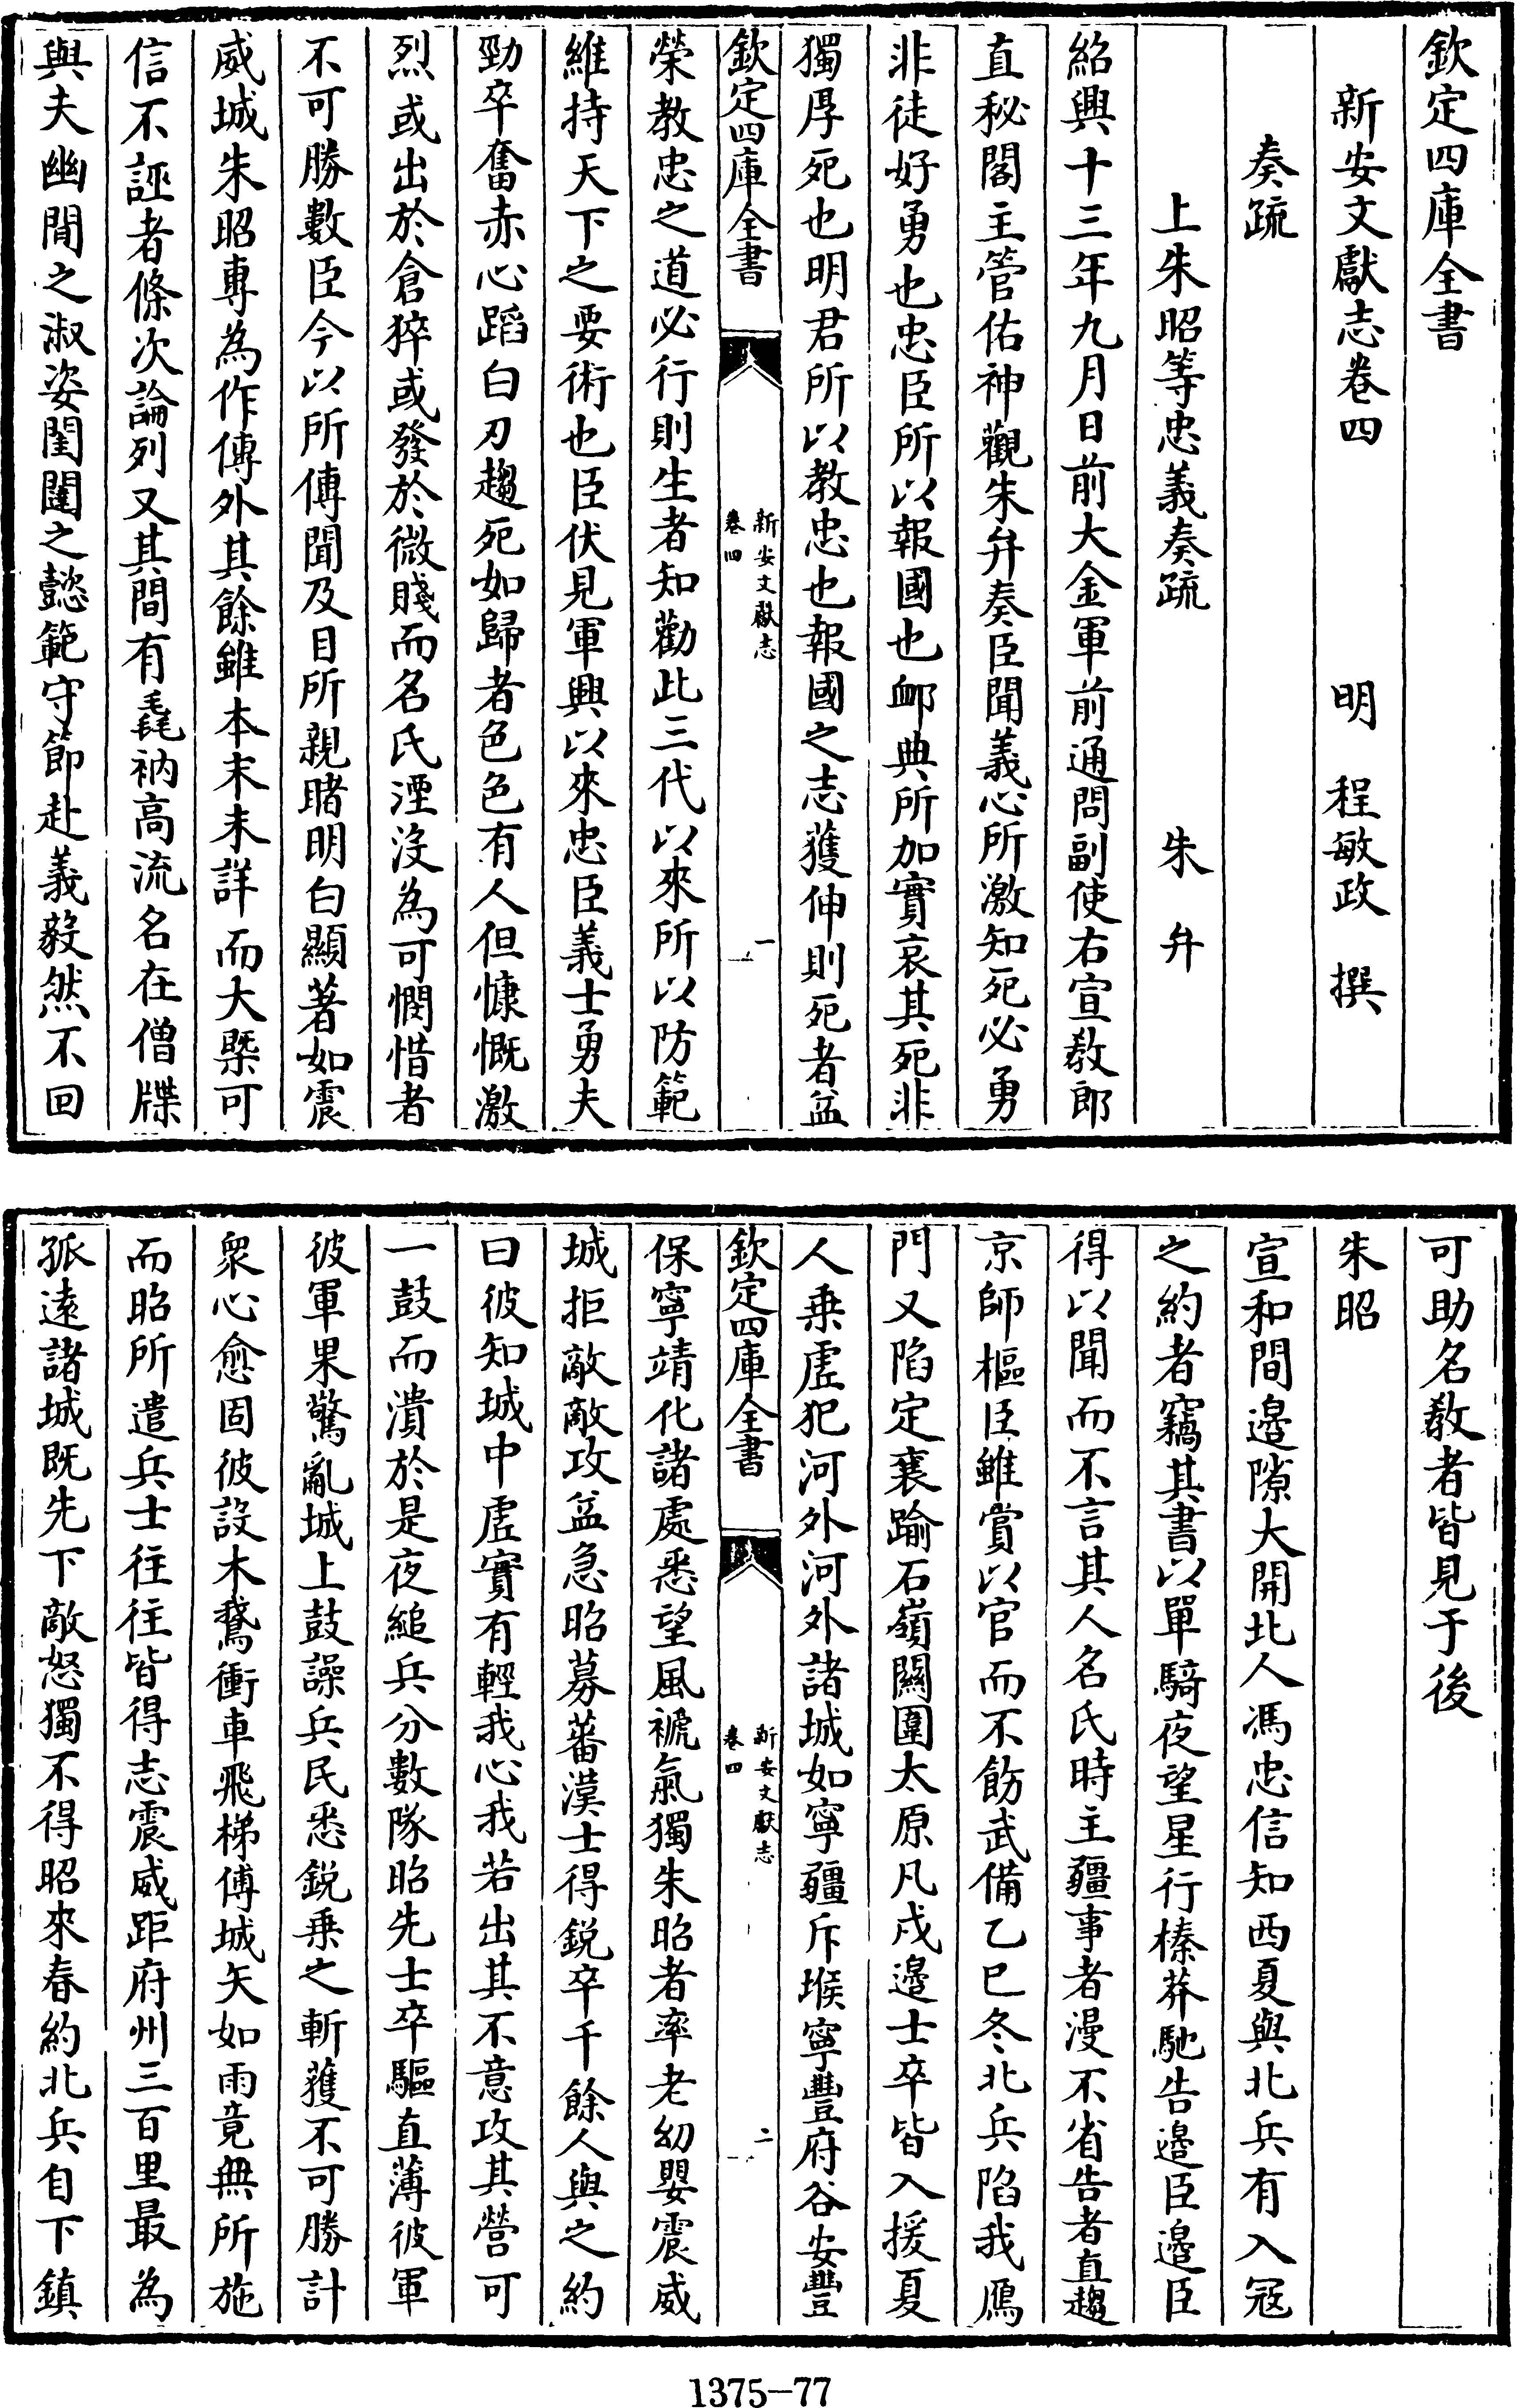 欽定四庫全書
新安文獻志卷四 明 程敏政 撰
奏疏
上朱昭等忠義奏疏 朱弁
紹興十三年九月日前大金軍前通問副使右宣教郎
直秘閣主管佑神觀朱弁奏臣聞義心所激知死必勇
非徒好勇也忠臣所以報國也卹典所加實哀其死非
獨厚死也明君所以教忠也報國之志獲伸則死者益
欽定四庫全書 新安文獻志 卷四 一
榮教忠之道必行則生者知勸此三代以來所以防範
維持天下之要術也臣伏見軍興以來忠臣義士勇夫
勁卒奮赤心蹈白刃趨死如歸者色色有人但慷慨激
烈或出於倉猝或發於微賤而名氏湮沒為可憫惜者
不可勝數臣今以所傳聞及目所親睹明白顯著如震
威城朱昭專為作傳外其餘雖本末未詳而大槩可
信不誣者條次論列又其間有毳衲高流名在僧牒
與夫幽閒之淑姿閨闥之懿範守節赴義毅然不回
可助名教者皆見于後
朱昭
宣和間邊隙大開北人馮忠信知西夏與北兵有入冦
之約者竊其書以單騎夜望星行榛莽馳告邊臣邊臣
得以聞而不言其人名氏時主疆事者漫不省告者直趨
京師樞臣雖賞以官而不飭武備乙巳冬北兵陷我鴈
門又陷定襄踰石嶺關圍太原凡戍邊士卒皆入援夏
人乗虛犯河外河外諸城如寧疆斥堠寧豐府谷安豐
欽定四庫全書 新安文獻志 卷四 二
保寧靖化諸處悉望風褫氣獨朱昭者率老幼嬰震威
城拒敵敵攻益急昭募蕃漢士得鋭卒千餘人與之約
曰彼知城中虛實有輕我心我若出其不意攻其營可
一鼓而潰於是夜縋兵分數隊昭先士卒驅直薄彼軍
彼軍果驚亂城上鼓譟兵民悉鋭乗之斬獲不可勝計
衆心愈固彼設木鵞衝車飛梯傅城矢如雨竟無所施
而昭所遣兵士往往皆得志震威距府州三百里最為
孤遠諸城既先下敵怒獨不得昭來春約北兵自下鎮
1375-77